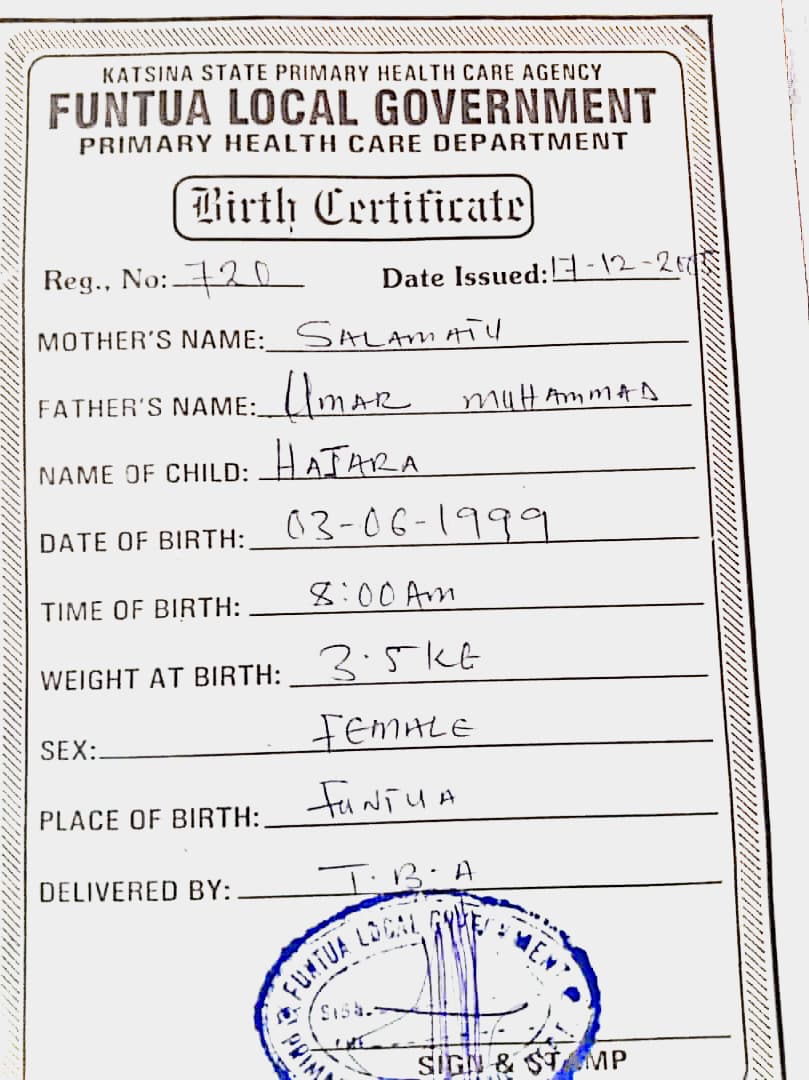 KATSINA STATE PRIMARY HEALTH CARE AGENCY
FUNTUA LOCAL GOVERNMENT
PRIMARY HEALTH CARE DEPARTMENT
Birth Certificate
Reg., No: 720 Date Issued: 17-12-2005
MOTHER'S NAME: SALAMATU
FATHER'S NAME: UMAR MUHAMMAD
NAME OF CHILD: HAJARA
DATE OF BIRTH: 03-06-1999
TIME OF BIRTH: 8:00 Am
WEIGHT AT BIRTH: 3.5 KG
SEX: FEMALE
PLACE OF BIRTH: FUNTUA
DELIVERED BY: T.B.A
FUNTUA LOCAL GOVERNMENT
SIGN & STAMP